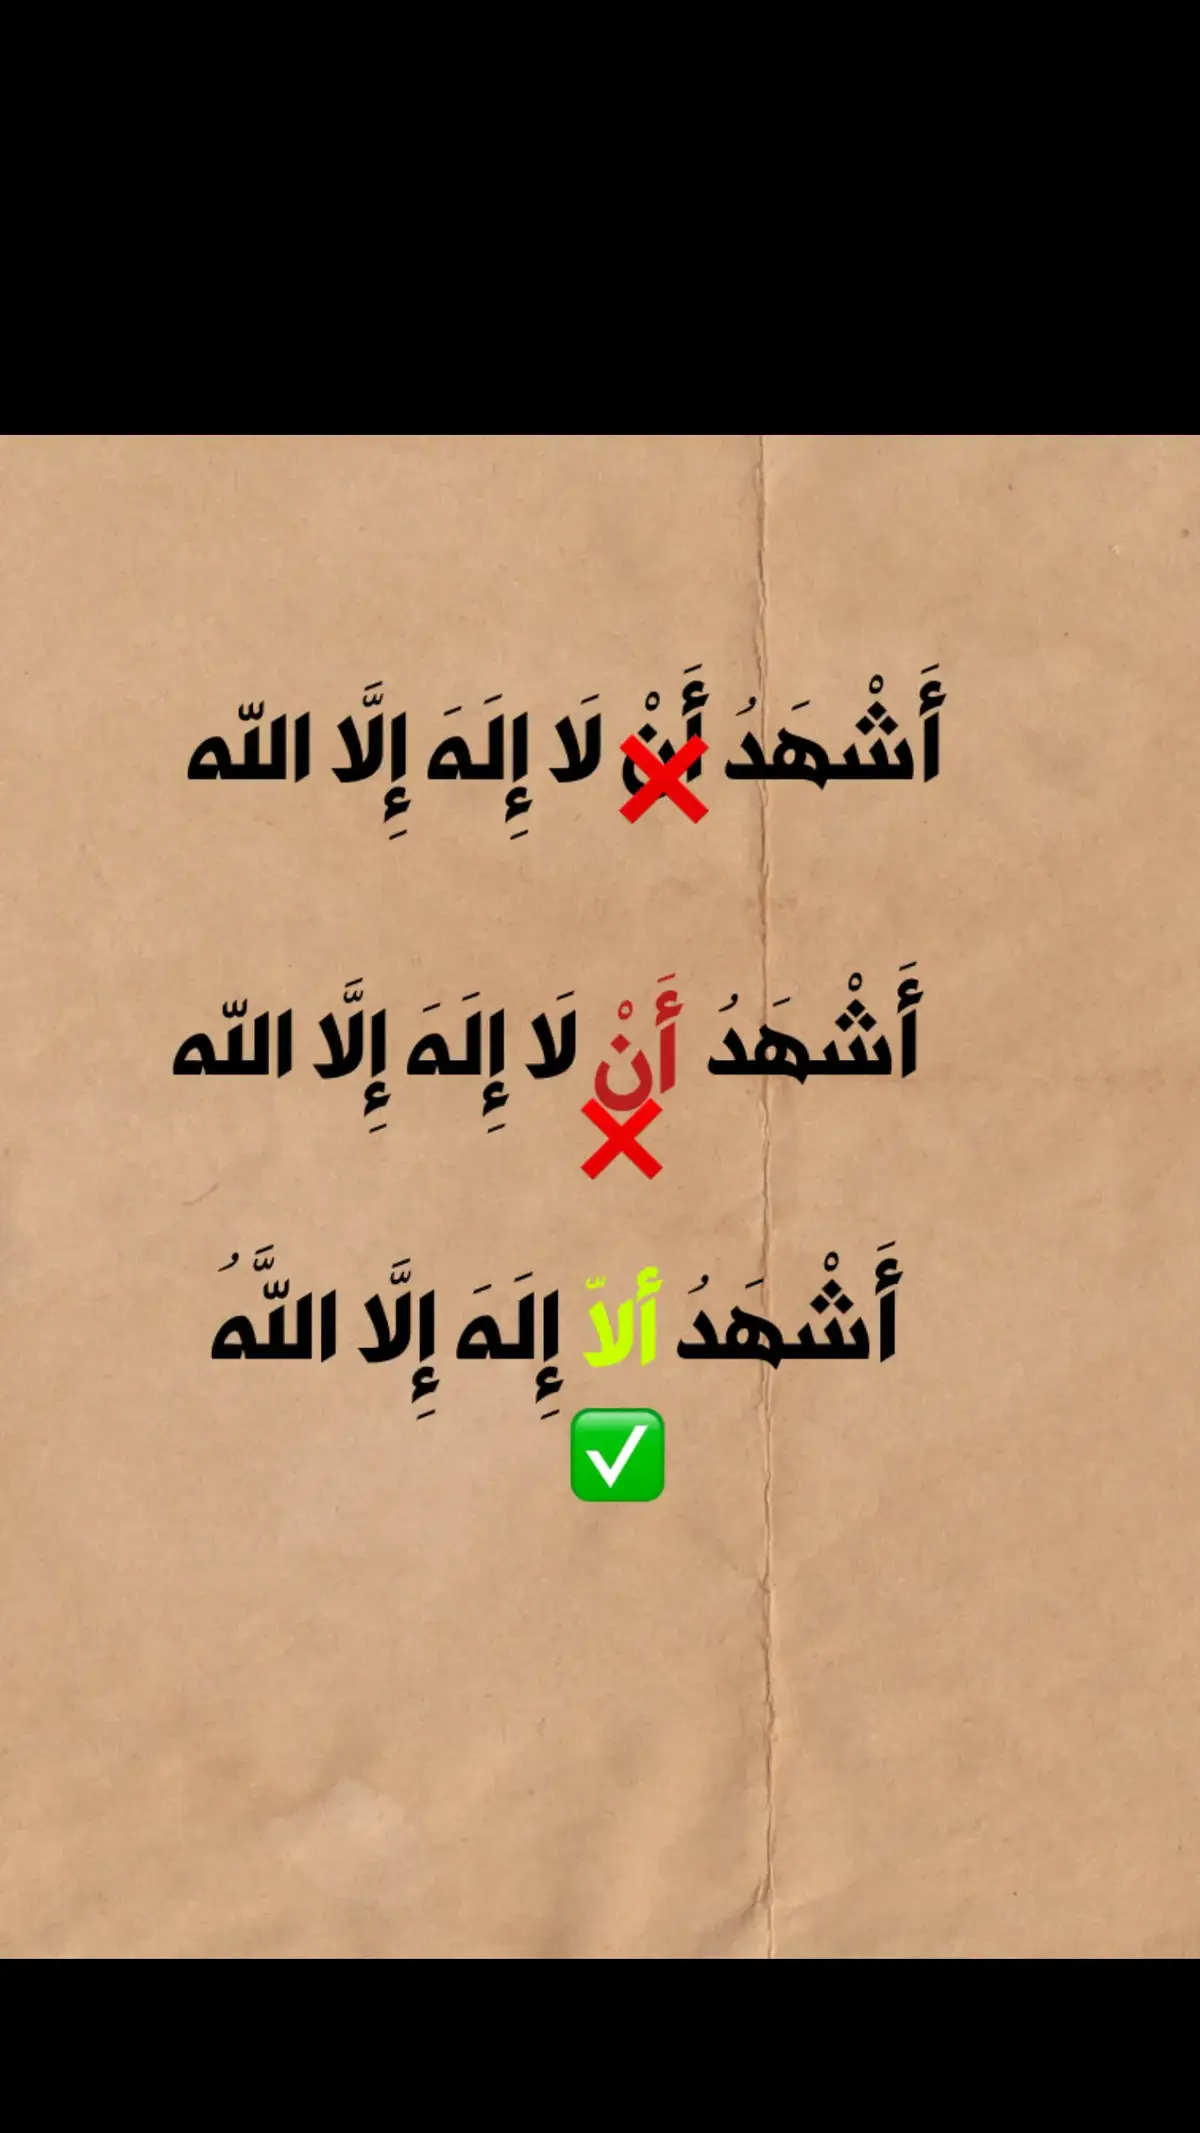 أَشْهَدُ أَنْ لَا إِلَهَ إِلَّا اللّه
أَشْهَدُ أَنْ لَا إِلَهَ إِلَّا اللّه
أَشْهَدُ ألاّ إِلَهَ إِلَّا اللَّهُ